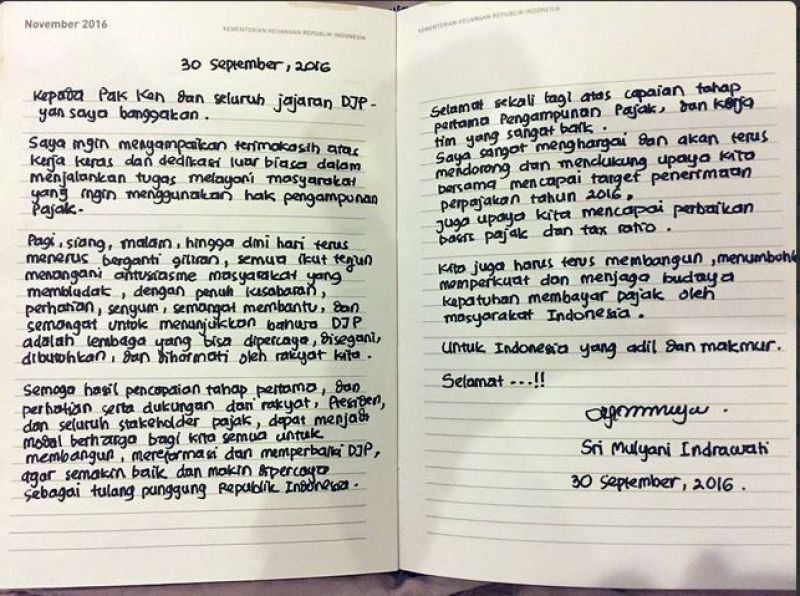 November 2016
KEMENTERIAN KEUANGAN REPUBLIK INDONESIA
30 September, 2016
Kepada Pak Ken dan seluruh jajaran DJP -
yan saya banggakan.
Saya ingin menyampaikan terimakasih atas
kerja keras dan dedikasi luar biasa dalam
menjalankan tugas melayani masyarakat
yang ingin menggunakan hak pengampunan
Pajak.
Pagi, siang, malam, hingga dini hari terus
menerus berganti giliran, semua ikut terjun
menangani antusiasme masyarakat yang
membludak, dengan penuh kesabaran,
perhatian, senyum, semangat membantu, dan
semangat untuk menunjukkan bahwa DJP
adalah lembaga yang bisa dipercaya, disegani,
dibutuhkan, dan dihormati oleh rakyat kita.
Semoga hasil pencapaian tahap pertama, dan
perhatian serta dukungan dari rakyat, Presiden,
dan seluruh stakeholder pajak, dapat menjadi
modal berharga bagi kita semua untuk
membangun, mereformasi dan memperbaiki DJP,
agar semakin baik dan makin dipercaya
sebagai tulang punggung Republik Indonesia.
KEMENTERIAN KEUANGAN REPUBLIK INDONESIA
Selamat sekali lagi atas capaian tahap
pertama Pengampunan Pajak, dan kerja
tim yang sangat baik.
Saya sangat menghargai dan akan terus
mendorong dan mendukung upaya kita
bersama mencapai target penerimaan
perpajakan tahun 2016.
juga upaya kita mencapai perbaikan
basis pajak dan tax ratio.
Kita juga harus terus membangun, menumbuhk
memperkuat dan menjaga budaya
kepatuhan membayar pajak oleh
masyarakat Indonesia.
Untuk Indonesia yang adil dan makmur.
Selamat ...!!
Sri Mulyani Indrawati
30 September, 2016.